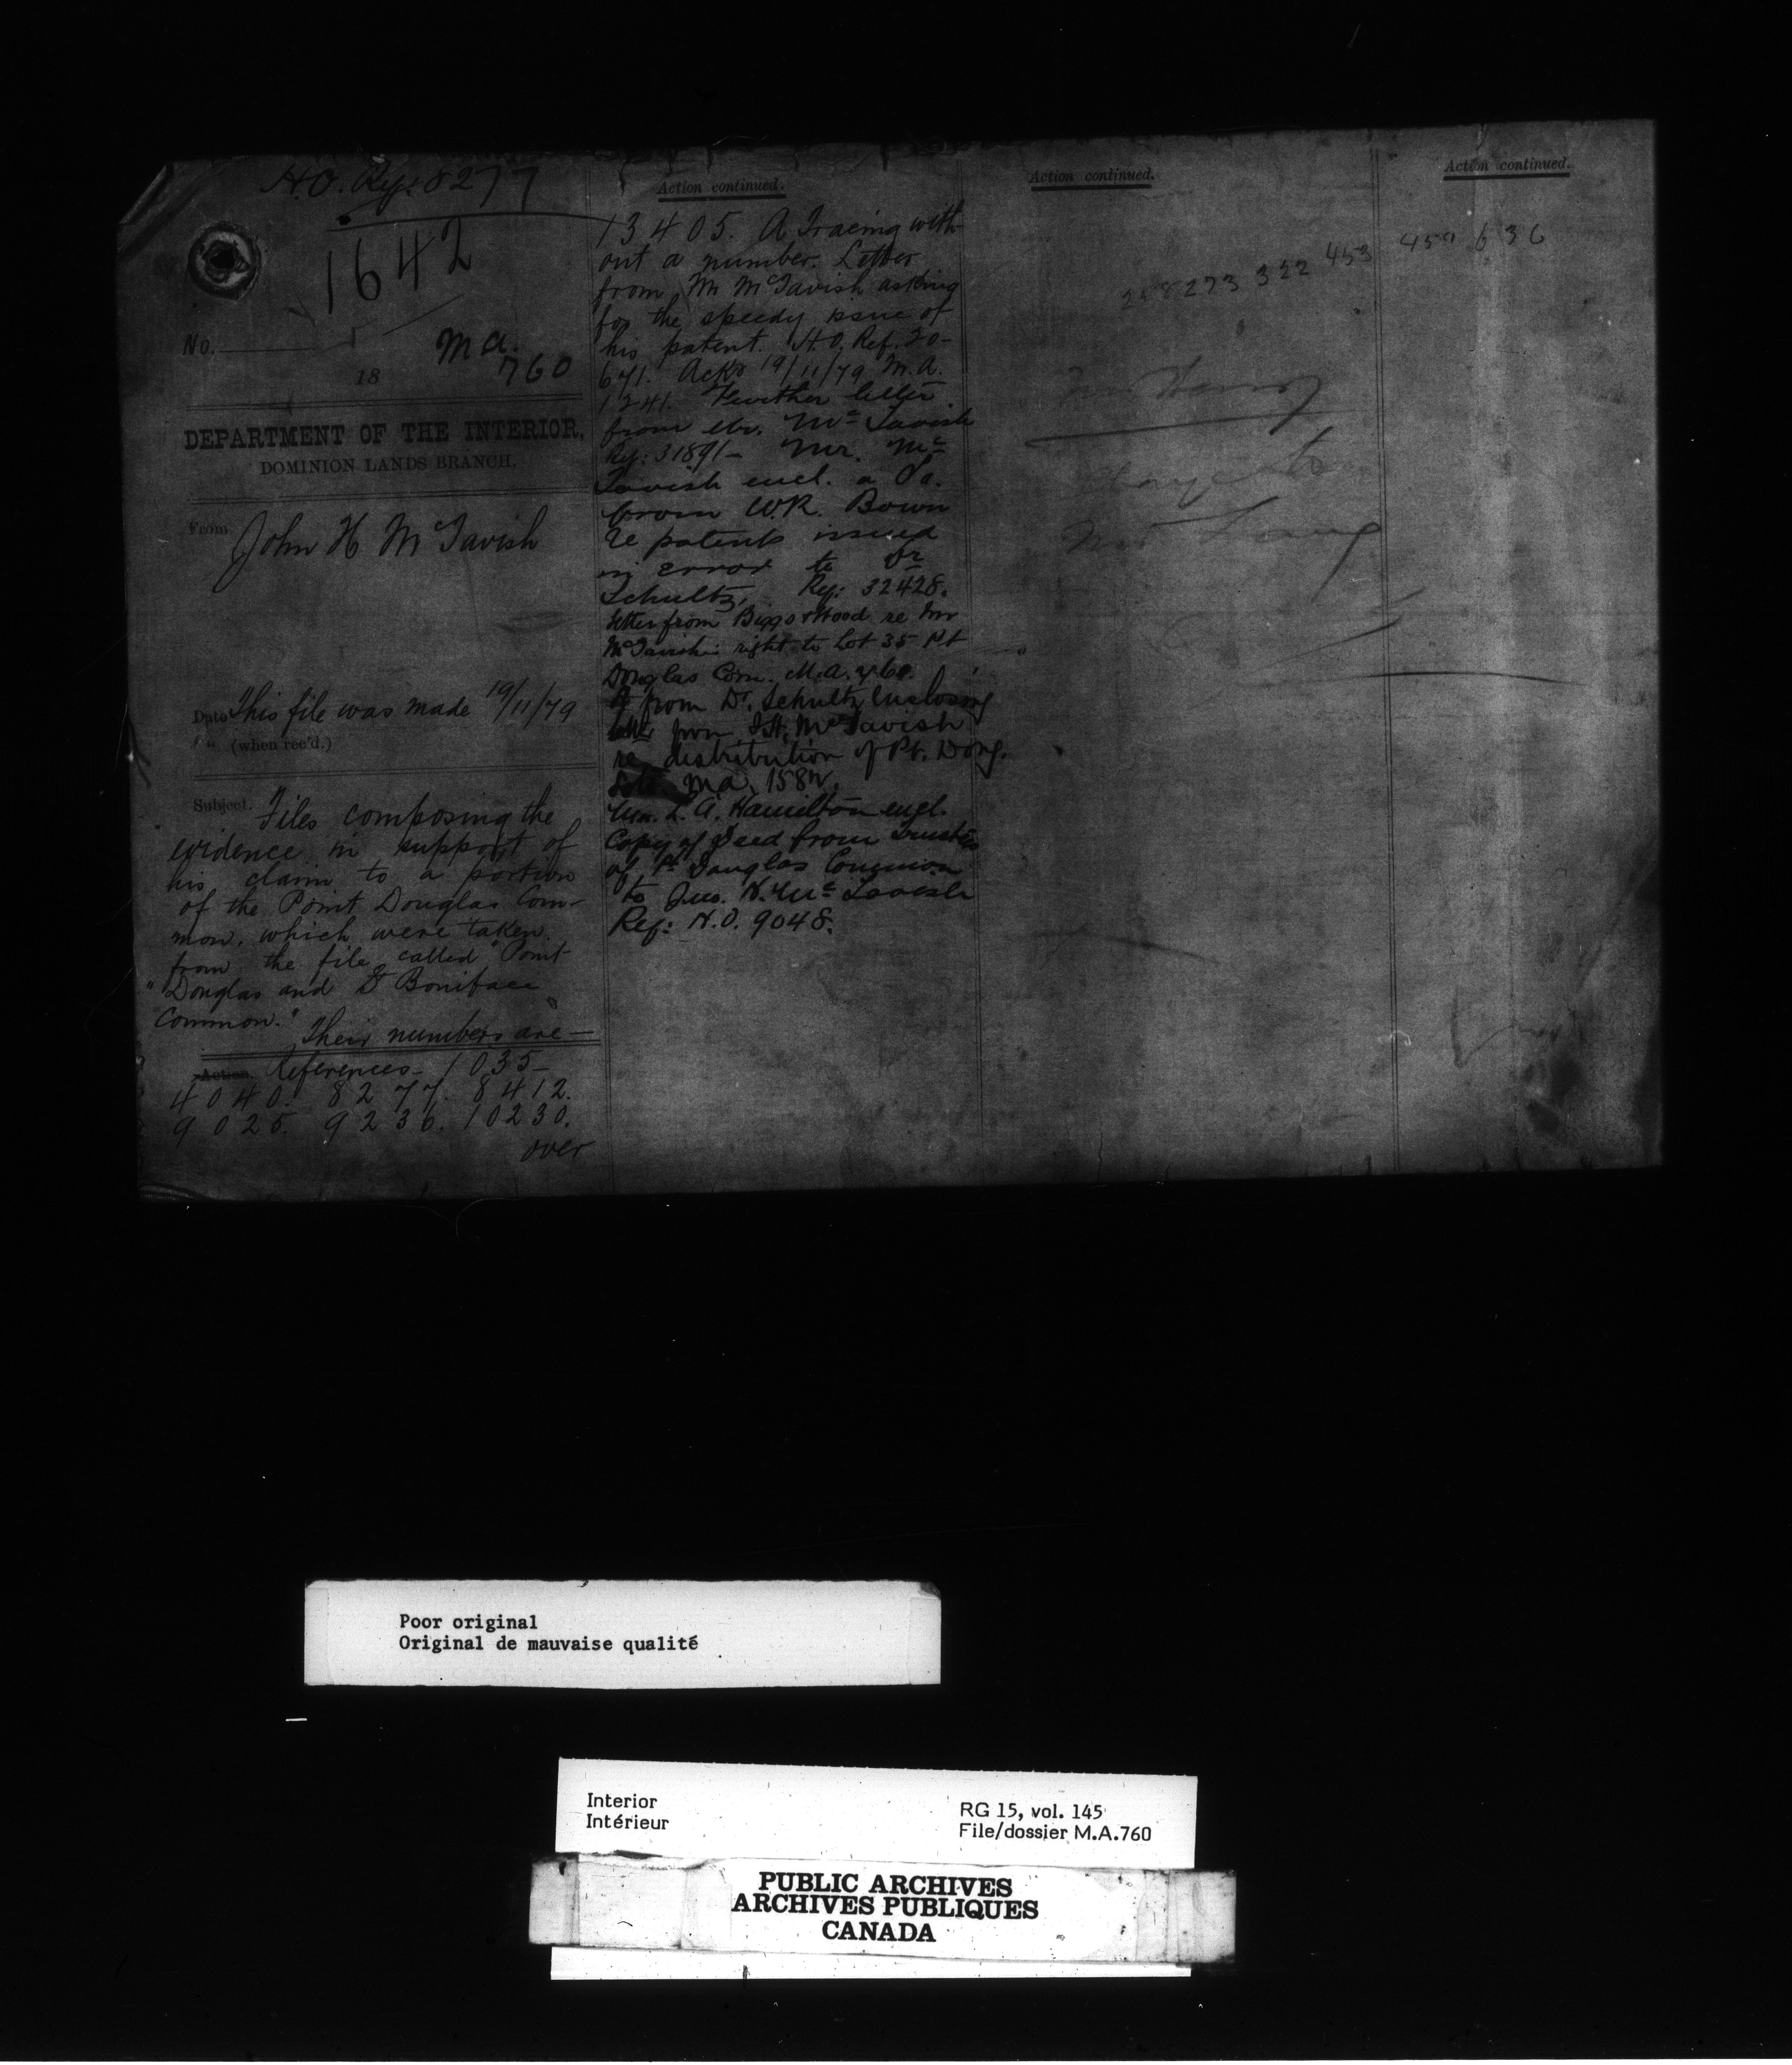 H.O. Ref: 8277
1642
No.
18
M.A.
760
DEPARTMENT OF THE INTERIOR,
DOMINION LANDS BRANCH.
From
John H McTavish
Date This file was made 19/11/79
" " (when rec'd.)
Subject. Files composing the
evidence in support of
his claim to a portion
of the Point Douglas Com-
mon, which were taken
from the file called "Point
"Douglas and St Boniface
Common."
Their numbers are—
Action. References— 1035—
4040. 8277. 8412.
9025. 9236. 10230.
over
Action continued.
13405. A Tracing with-
out a number. Letter
from Mr McTavish asking
for the speedy issue of
his patent. H.O. Ref. 20-
671. Ackd 19/11/79 M.A.
1241. Further letter
from Mr. McTavish
Ref: 31891— Mr. Mc
Tavish encl. a
from W.R. Bown
re patents issued
in error to Dr
Schultz, Ref: 32428.
letter from Biggs & Wood re Mr
McTavish's right to Lot 35 Pt
Douglas Com. M.A. 760.
from Dr. Schultz Inclosing
letter from J.H. McTavish
re distribution of Pt. Doug.
M.A. 1587.
L.A. Hamilton encl.
Copy of Deed from Trustees
of Pt Douglas Common
to Jno. H. McTavish
Ref: H.O. 9048.
Action continued.
273 322 453
Action continued.
636
Poor original
Original de mauvaise qualité
Interior
Intérieur
RG 15, vol. 145
File/dossier M.A.760
PUBLIC ARCHIVES
ARCHIVES PUBLIQUES
CANADA